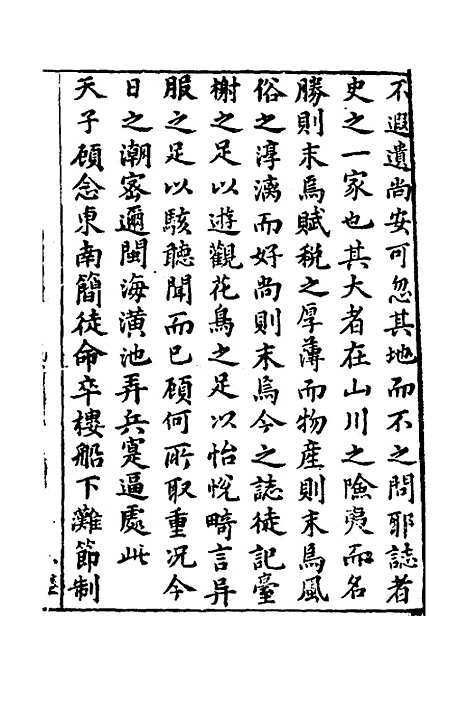 不遐遺尚安可忽其地而不之問耶誌者
史之一家也其大者在山川之險夷而名
勝則末焉賦稅之厚薄而物產則末焉風
俗之淳漓而好尚則末焉今之誌徒記臺
榭之足以遊觀花鳥之足以怡悅畸言异
服之足以駭聽聞而已顧何所取重况今
日之潮密邇閩海潢池弄兵寔逼處此
天子頋念東南簡徒命卒樓船下灘節制